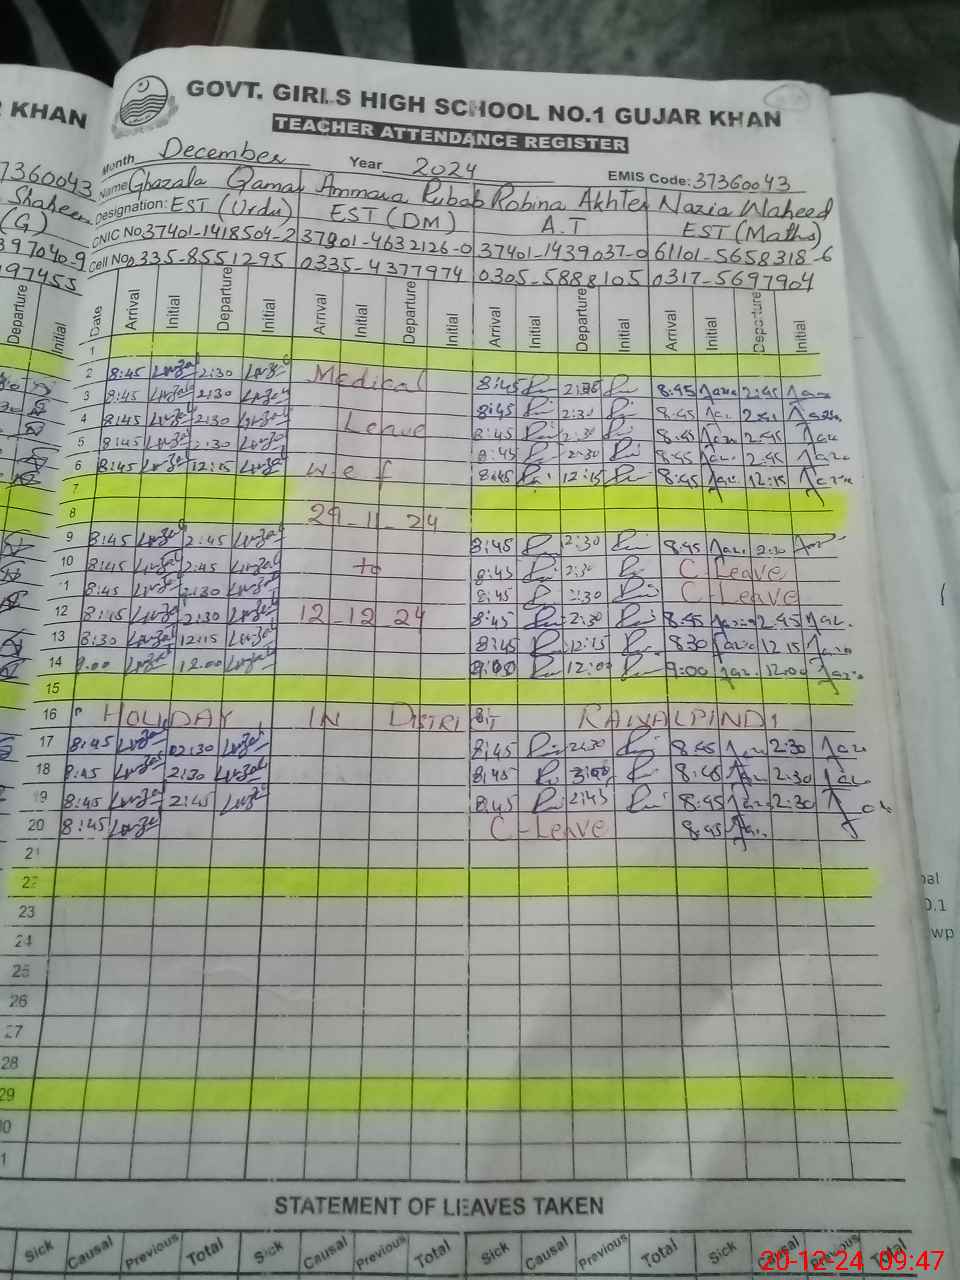 KHAN
GOVT. GIRLS HIGH SCHOOL NO.1 GUJAR KHAN
TEACHER ATTENDANCE REGISTER
Month December Year 2024 EMIS Code: 37360043
7360043
Shaheen
(G)
397040-9
197455
Name Ghazala Qamar Ammara Rubab Robina Akhter Nazia Waheed
Designation: EST (Urdu) EST (DM) A.T EST (Maths)
CNIC No. 37401-1418504-2 37901-4632126-0 37401-1439037-0 61101-5658318-6
Cell No. 0335-8551295 0335-4377974 0305-5888105 0317-5697904
Departure Initial Date Arrival Initial Departure Initial Arrival Initial Departure Initial Arrival Initial Departure Initial Arrival Initial Departure Initial
1
2 8:45 2:30 Medical 8:45 8:45 2:45
3 8:45 2:30 8:45 2:30 8:45
4 8:45 2:30 Leave 8:45 2:30 8:45 2:45
5 8:45 2:30 8:45 2:30 8:45 2:45
6 8:45 12:15 w e f 8:45 12:15 8:45 12:15
7
8 29-11-24
9 8:45 2:45 8:45 2:30 8:45 2:30
10 8:45 2:45 to 8:45 2:30 C-Leave
11 8:45 2:30 8:45 2:30 C-Leave
12 8:45 2:30 12-12-24 8:45 2:30 8:45 2:45
13 8:30 12:15 8:45 12:15 8:30 12:15
14 9:00 12:00 9:00 12:00 9:00 12:00
15
16 HOLIDAY IN DISTRICT RAWALPINDI
17 8:45 2:30 8:45 2:30 8:45 2:30
18 8:45 2:30 8:45 3:00 8:45 2:30
19 8:45 2:45 8:45 2:45 8:45 2:30
20 8:45 C-Leave 8:45
21
22
23
24
25
26
27
28
29
30
31
STATEMENT OF LEAVES TAKEN
Sick Causal Previous Total Sick Causal Previous Total Sick Causal Previous Total Sick Causal Previous Total
20-12-24 09:47